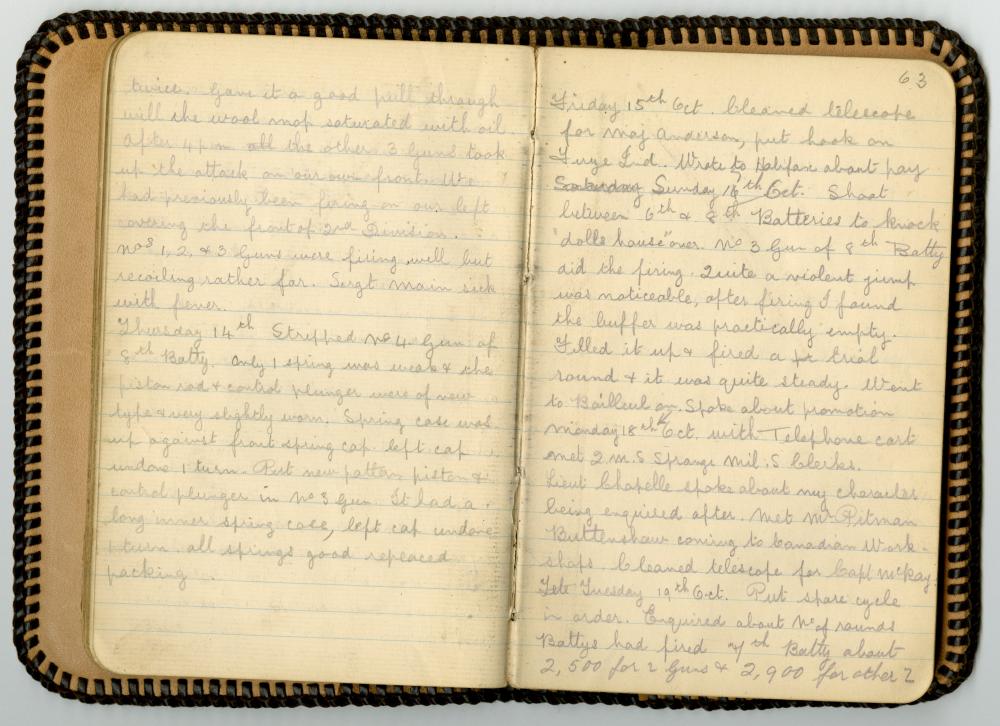 twice. Gave it a good pull through
will the wool mop saturated with oil.
After 4 pm all the other 3 Guns took
up the attack on our own front. We
had previously been firing on our left
covering the front of 2nd Division.
Nos 1, 2, & 3 Guns were firing well but
recoiling rather far. Sergt Main sick
with fever.
Thursday 14th Stripped No 4 Gun of
8th Batty. Only 1 spring was weak & the
piston rod & control plunger were of new
type & very slightly worn. Spring case was
up against front spring cap. left cap
undone 1 turn. Put new pattern piston &
control plunger in No 3 Gun. It had a
long inner spring case, left cap undone
1 turn. all springs good repeaced
packing.
63
Friday 15th Oct. Cleaned telescope
for Maj Anderson, put hook on
Fuze Ind. Wrote to Halifax about pay
Saturday Sunday 16th Oct. Shoot
between 6th & 8th Batteries to knock
"dolls house" over. No 3 Gun of 8th Batty
did the firing. Quite a violent jump
was noticeable, after firing I found
the buffer was practically empty.
Filled it up & fired a trial
round & it was quite steady. Went
to Bailleul on. Spoke about promotion
Monday 18th Oct. with Telephone cart
met 2 M.S Sprange Mil. S Clerks.
Lieut Chapelle spoke about my character
being enquired after. Met Mr Pitman
Buttenshaw coming to Canadian Work-
shops. Cleaned telescope for Capt McKay
Tuesday 19th Oct. Put spare cycle
in order. Enquired about No of rounds
Battys had fired 7th Batty about
2,500 for 2 Guns & 2,900 for other 2